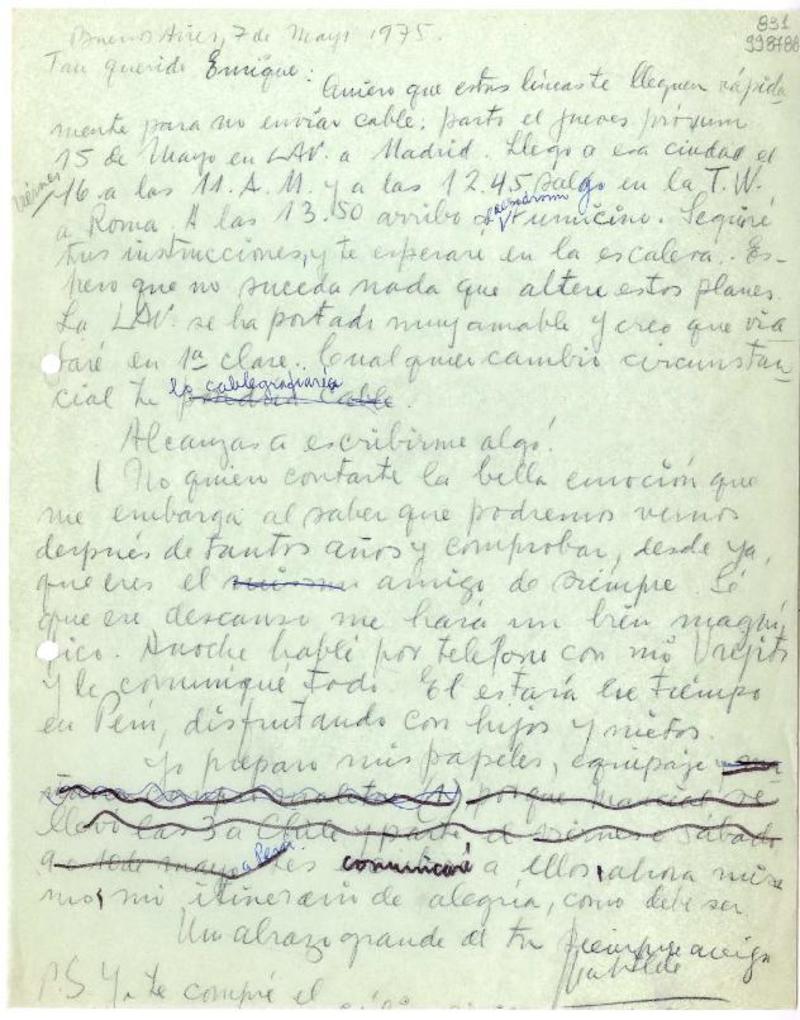 831
998786
Buenos Aires, 7 de Mayo 1975.
Tan querido Enrique:
Quiero que estas lineas te lleguen rápida-
mente para no enviar cable: parto el jueves próximo
15 de Mayo en LAP. a Madrid. Llego a esa ciudad el
viernes
16 a las 11. A.M. y a las 12.45 salgo en la T.W.
a Roma. A las 13.50 arribo aeródromo Fiumicino. Seguiré
tus instrucciones, y te esperaré en la escalera. Es-
pero que no suceda nada que altere estos planes.
La LAP. se ha portado muy amable y creo que via-
jaré en 1ª clase. Cualquier cambio circunstan-
cial te lo cablegrafiaría
Alcanzas a escribirme algo!
No quiero contarte la bella emoción que
me embarga al saber que podremos vernos
después de tantos años y comprobar, desde ya,
que eres el amigo de siempre. Sé
que ese descanso me hará un bién magní-
fico. Anoche hablé por teléfono con mi Viejito
y le comuniqué todo. El estará ese tiempo
en Perú, disfrutando con hijos y nietos.
Yo preparo mis papeles, equipaje
porque
llevó las 3 a Chile y parte el viernes o sábado
10 de mayo a Perú. Les comunicaré a ellos, ahora mis-
mo, mi itinerario de alegría, como debe ser
Un abrazo grande de tu siempre amiga
Matilde
P.S. Ya te compré el